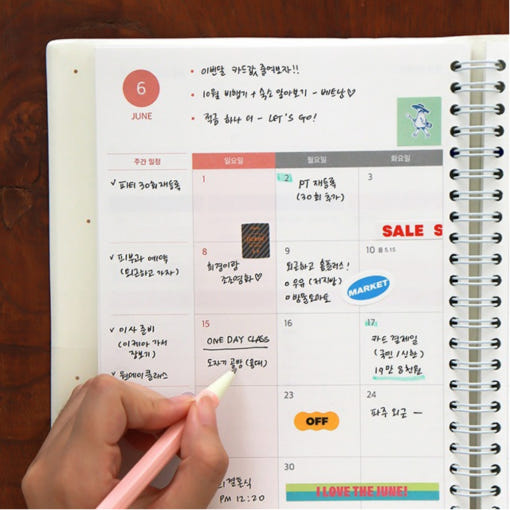 이번달 카드값 줄여보자!!
6
JUNE
10월 비행기 + 숙소 알아보기 - 베트남♡
적금 하나 더 - LET'S GO!
주간 일정
일요일
월요일
화요일
✓ 피티 30회 재등록
1
2
PT 재등록
(30회 추가)
3
SALE S
✓ 피부과 예약
(퇴근하고 가자)
8
희경이랑
조조영화♡
9
퇴근하고 홈플러스!
우유 (저지방)
방울토마토
10 음 5.15
MARKET
✓ 이사 준비
(이케아 가서
장보기)
✓ 원데이클래스
15
ONE DAY CLASS
도자기 공방 (홍대)
16
17
카드 결제일
(국민 / 신한)
19만 8천원
23
OFF
24
파주 외근 -
결혼식
PM 12:20
30
I LOVE THE JUNE!